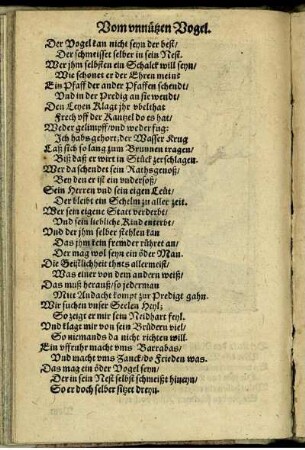 Vom vnnützen Vogel.
Der Vogel kan nicht seyn der best/
Der schmeisset selber in sein Nest.
Wer jhm selbsten ein Schalck will seyn/
Wie schonet er der Ehren mein:
Ein Pfaff der ander Pfaffen schendt/
Vnd in der Predig an sie wendt/
Den Leyen Klagt jhr vbelthat
Frech vff der Kantzel do es hat/
Weder gelimpff/ vnd weder fug:
Ich habs gehort/ der Wasser Krug
Laß sich so lang zum Brunnen tragen/
Biß daß er wirt in Stück zerschlagen.
Wer da schendet sein Rathsgenoß/
Bey den er ist ein vndersoß/
Sein Herren vnd sein eigen Leüt/
Der bleibt ein Schelm zu aller zeit.
Wer sein eigene Statt verderbt/
Vnd sein liebliche Kind enterbt/
Vnd der jhm selber stehlen kan
Das jhm kein fremder rühret an/
Der mag wol seyn ein öder Man.
Die Geistlichheit thuts allermeist/
Was einer von dem andern weißt/
Das muß herauß/ so jederman
Mitt Andacht kompt zur Predigt gahn.
Wir suchen vnser Seelen Heyl/
So zeigt er mir sein Neidhart feyl.
Vnd klagt mir von sein Brüdern viel/
So niemands da nicht richten will.
Ein vffruhr macht vms Barrabas/
Vnd macht vms Zanck/ do Frieden was.
Das mag ein öder Vogel seyn/
Der in sein Nest selbst schmeißt hineyn/
So er doch selber sitzet dreyn.